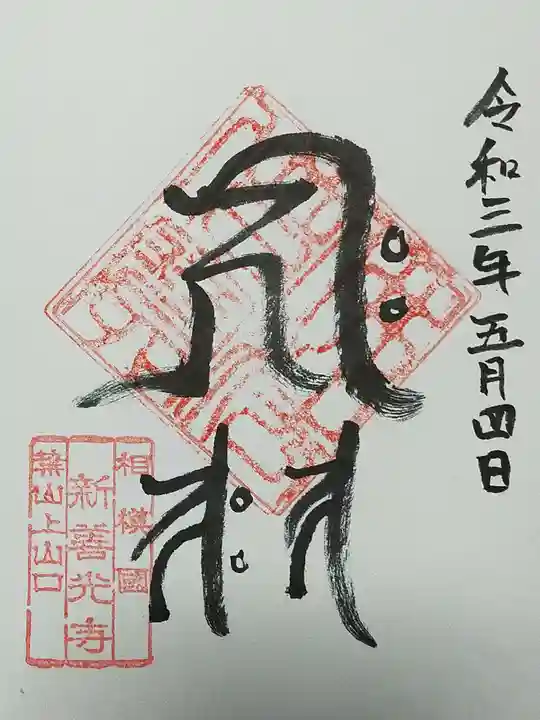 令和三年五月四日
𑖮𑖿𑖨𑖱𑖾
𑖭
𑖭𑖾
相模國
新善光寺
葉山上山口